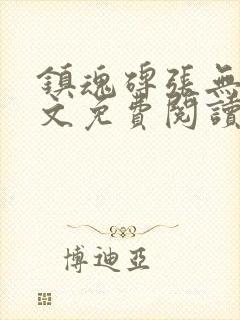 鎮魂磚張無
文免費閱讀
博迪亞